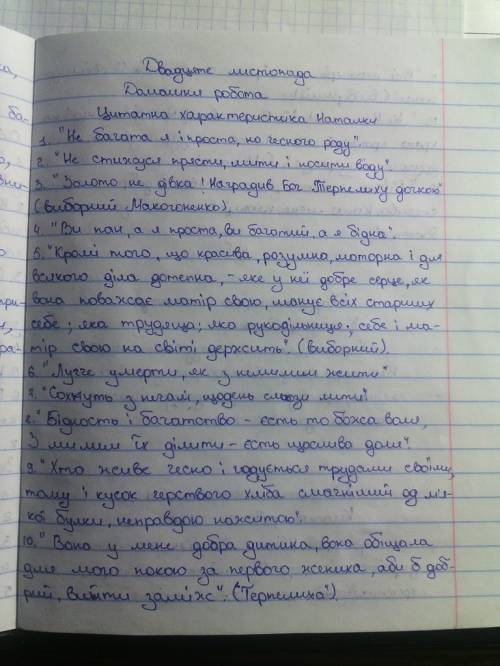 Двадцяте листопада
Домашня робота
Цитатна характеристика Наталки
1. "Не багата я і проста, но чесного роду".
2. "Не стижуся прясти, шити і носити воду"
3. "Золото, не дівка! Наградив Бог Терпилиху дочкою"
(виборний Макогоненко).
4. "Ви пан, а я проста, ви багатий, а я бідна".
5. "Кромі того, що красива, розумна, моторна і для
всякого діла дотепна, - яке у неї добре серце, як
вона поважає матір свою, шанує всіх старших
себе; яка трудяща; яка рукодільниця; себе і ма-
тір свою на світі держить". (виборний).
6. "Лучче умерти, як з немилим жити"
7. "Сохнуть з печалі, щодень сльози лити".
8. "Бідность і багатство - єсть то божа воля,
З милим їх ділити - єсть щаслива доля".
9. "Хто живе чесно і годується трудами своїми,
тому і кусок черствого хліба смачніший од м'я-
кої булки, неправдою нажитої".
10. "Вона у мене добра дитина, вона обіщала
для мого покою за первого жениха, аби б доб-
рий, вийти заміж". ("Терпелиха").